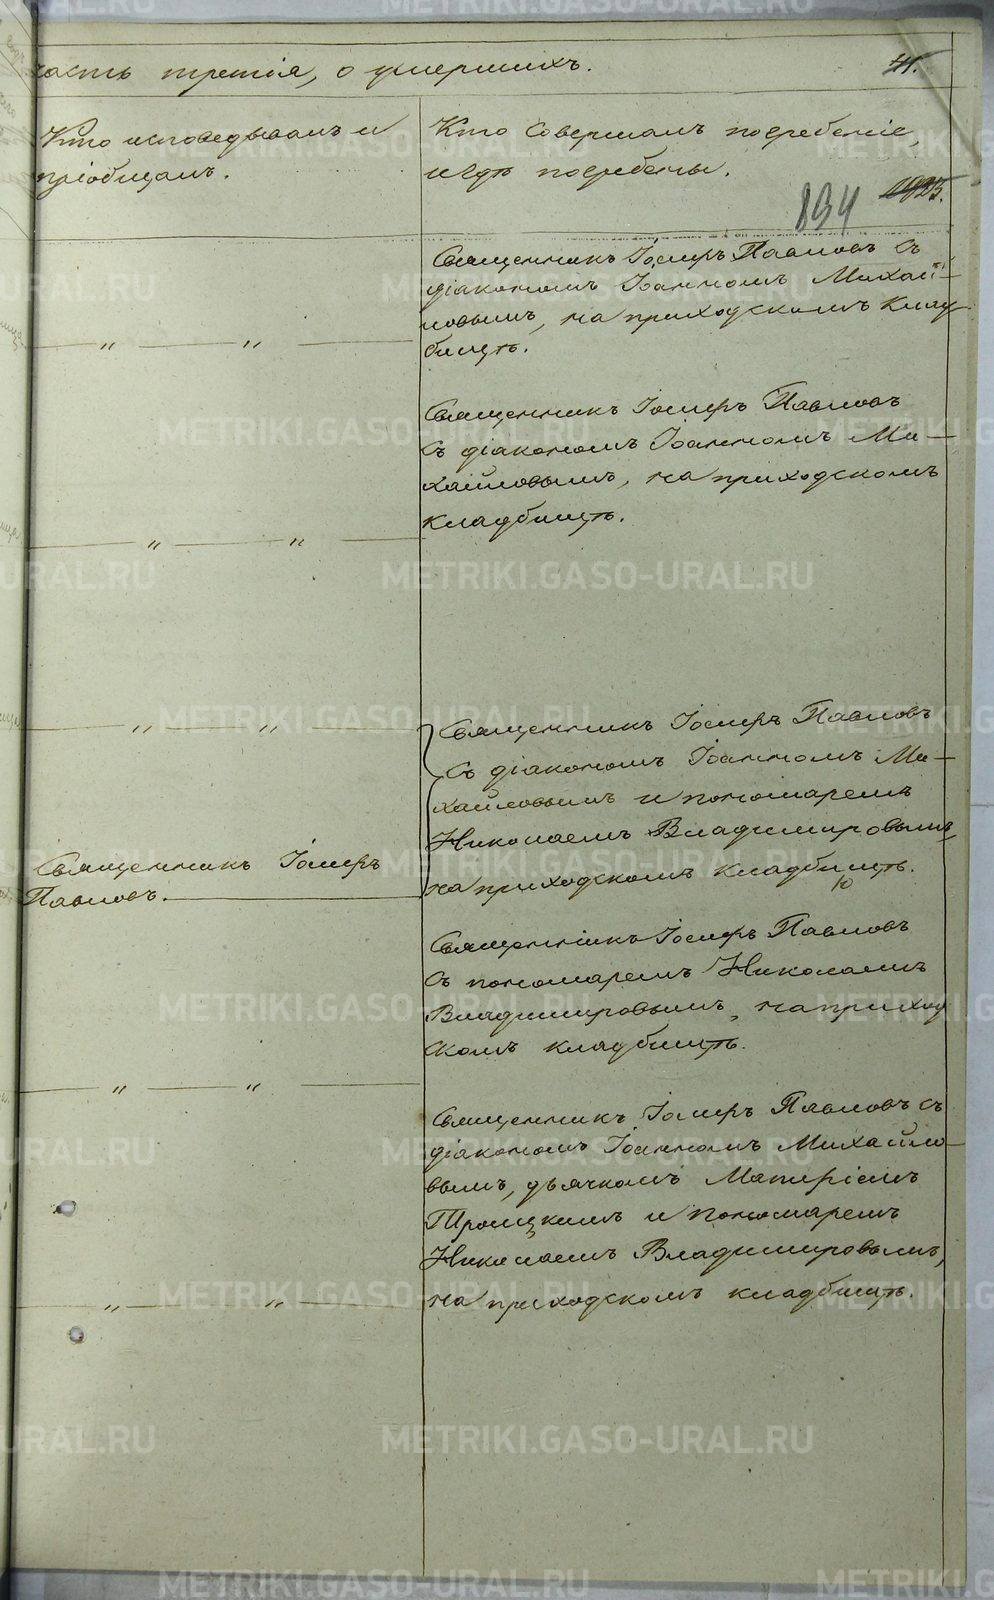 часть третія, о умершихъ.
41.
Кто исповедывалъ и
пріобщалъ.
Кто совершалъ погребеніе,
и гдѣ погребены.
894
Священникъ Іосифъ Павловъ съ
діакономъ Іоанномъ Михай-
ловымъ, на приходскомъ клад
бищѣ.
— „ — „ —
Священникъ Іосифъ Павловъ
съ діакономъ Іоанномъ Ми-
хайловымъ, на приходскомъ
кладбищѣ.
— „ — „ —
— „ — „ —
Священникъ Іосифъ Павловъ
съ діакономъ Іоанномъ Ми-
хайловымъ и пономаремъ
Николаемъ Владимировымъ,
на приходскомъ кладбищѣ.
Священникъ Іосифъ
Павловъ.
10
Священникъ Іосифъ Павловъ
съ пономаремъ Николаемъ
Владимировымъ, на приход
скомъ кладбищѣ.
— „ — „ —
Священникъ Іосифъ Павловъ съ
діакономъ Іоанномъ Михайло-
вымъ, дьячкомъ
Троицкимъ и пономаремъ
Николаемъ Владимировымъ,
на приходскомъ кладбищѣ.
— „ — „ —
METRIKI.GASO-URAL.RU